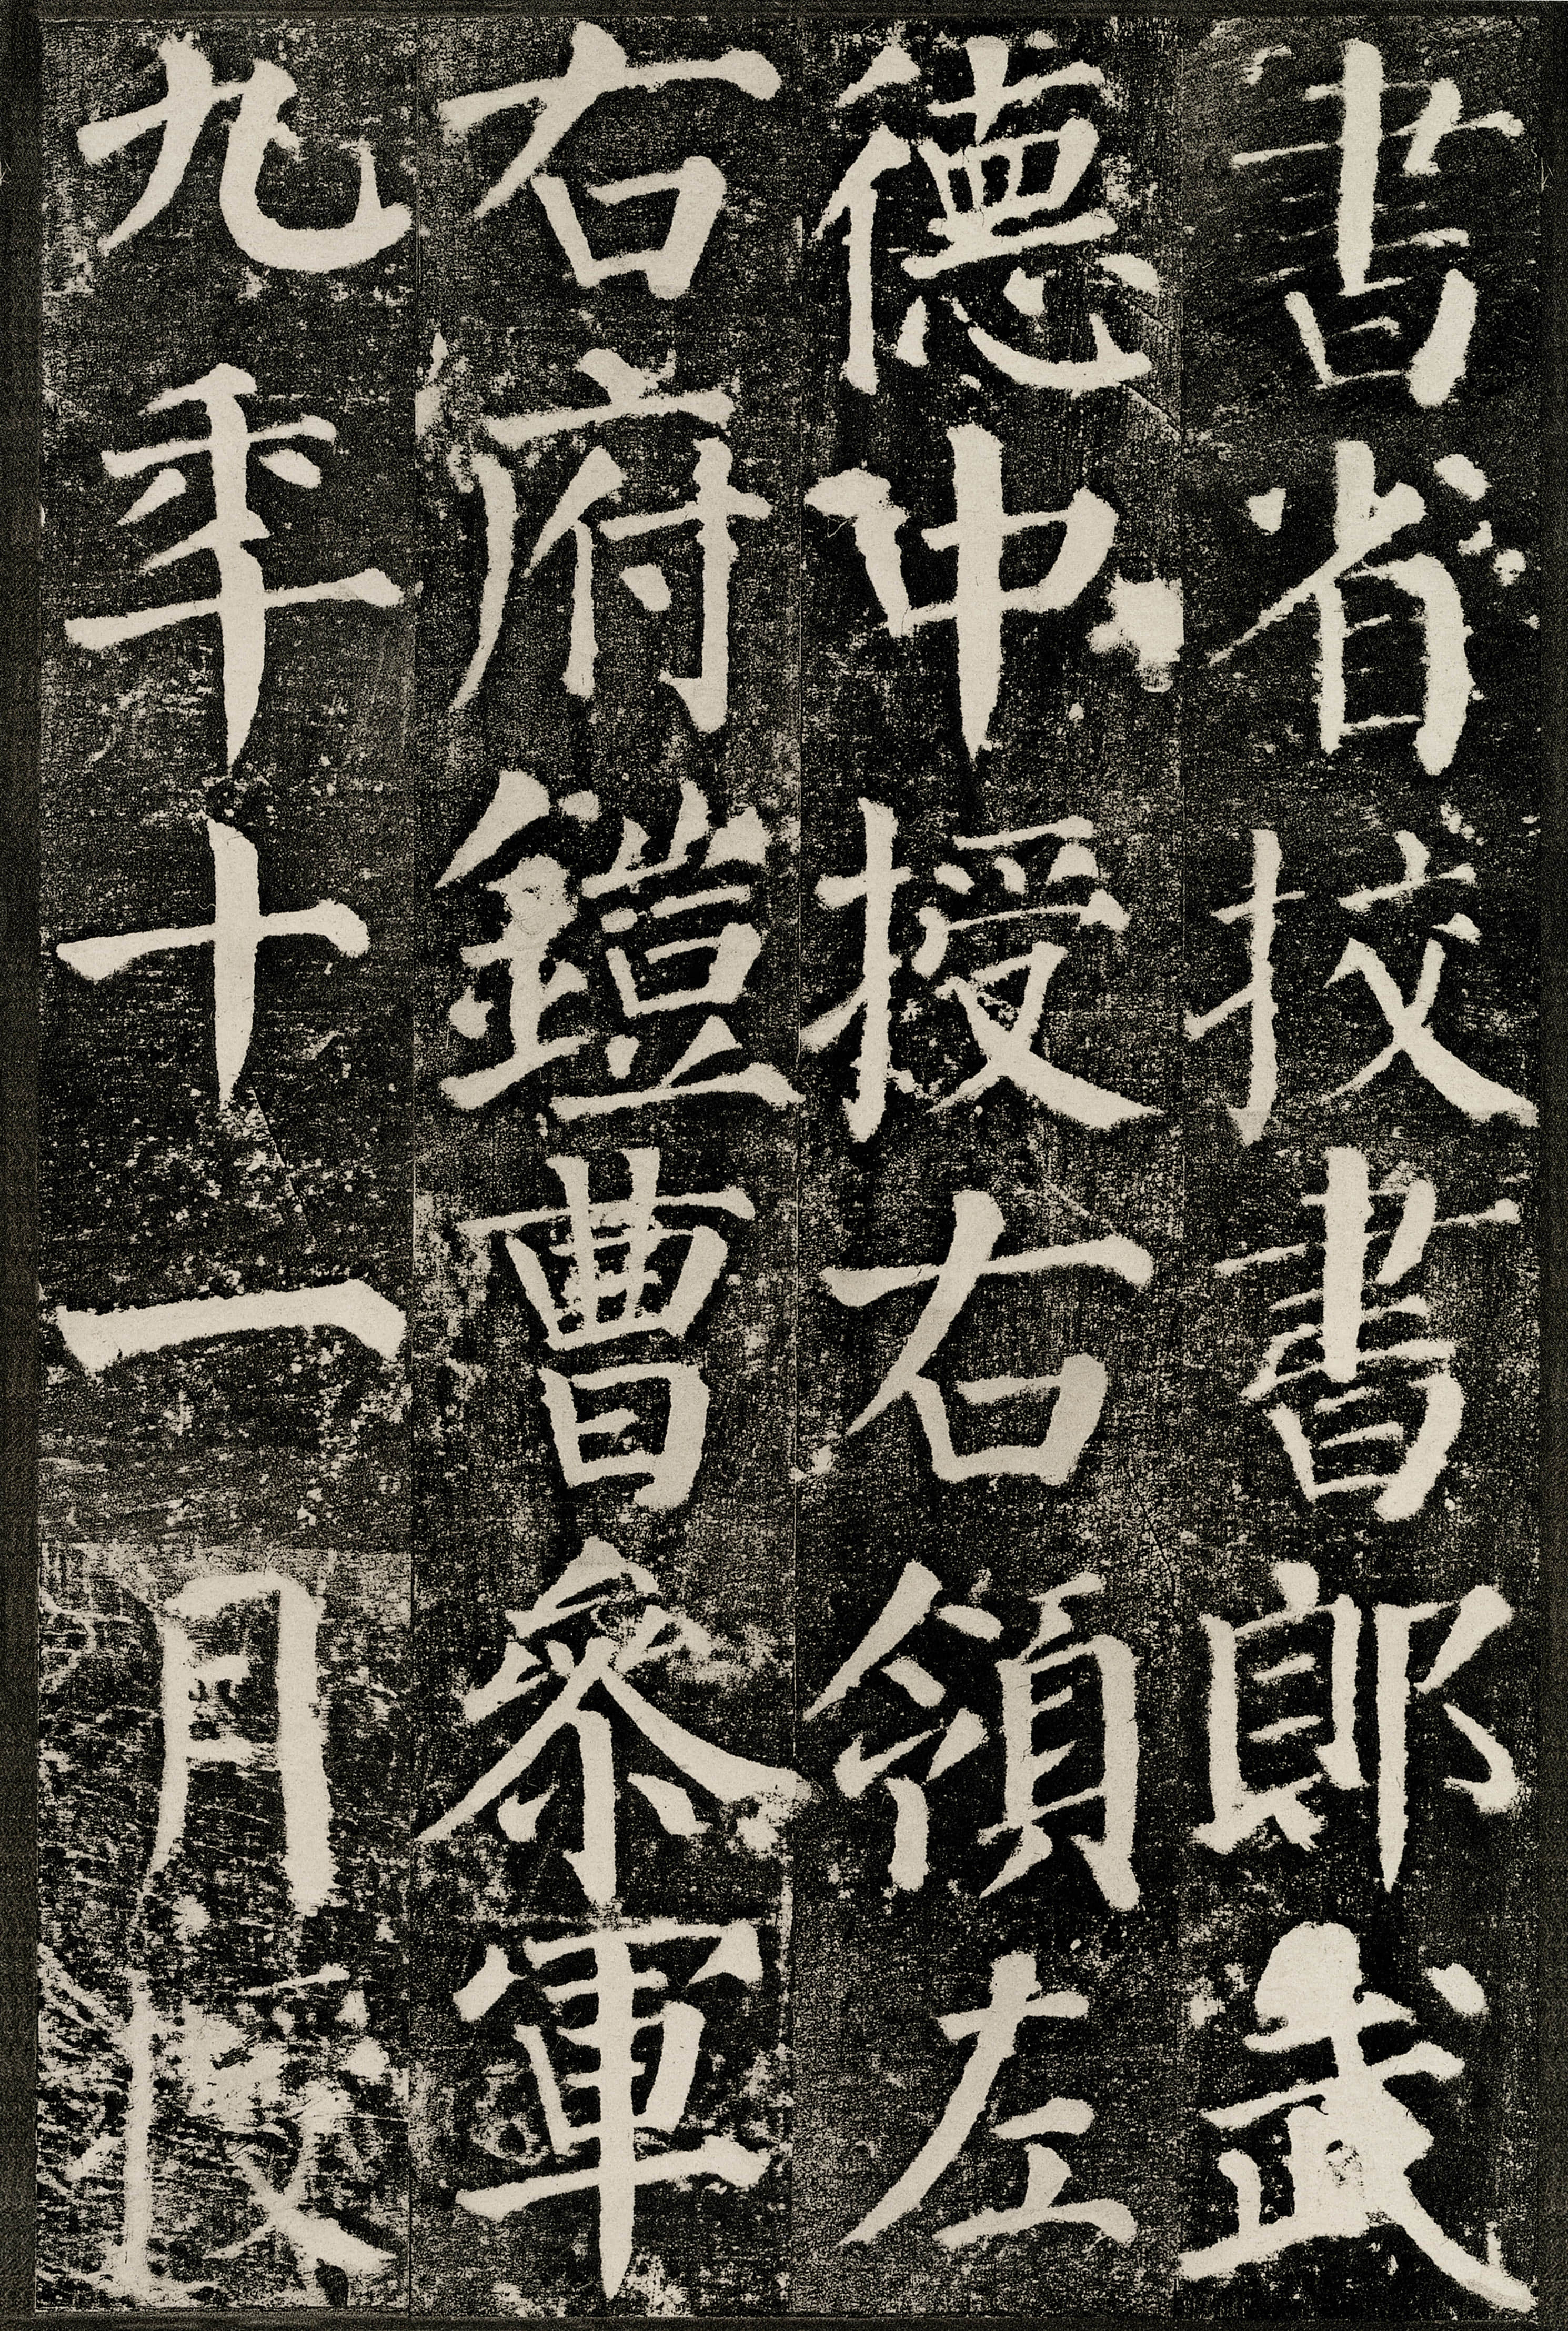 書省挍書郎武
德中授右領左
右府鎧曹參軍
九年十一月授